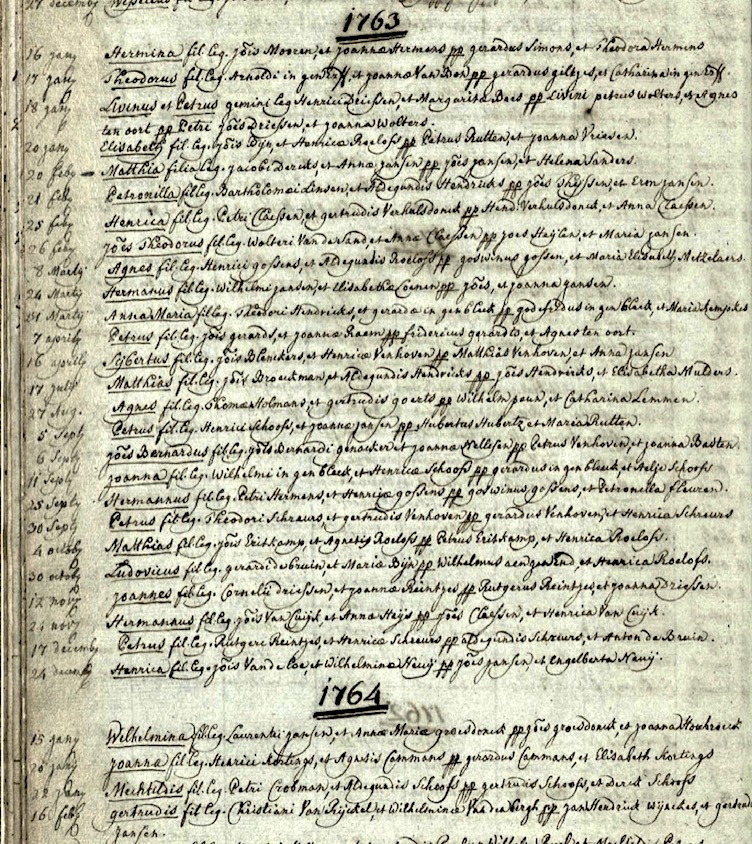 27 decemb Wesselius fil leg
1763
16 janÿ Hermina fil leg. Jois Mooren, et joannæ Hermens pp gerardus Simons, et Theodora Hermens
17 janÿ Theodorus fil. leg. Arnoldi in gen Eÿff, et joannæ Van Bon pp gerardus giltjes, et Catharina in gen Eÿff.
18 janÿ Livinus et Petrus gemini leg Henrici Driessen, et Margarita Baes pp Livini petrus Wolters, et Agnes
ten oort pp Petri Jois Driessen, et joanna Wolters.
20 janÿ Elisabeth fil. leg. Jois Dÿn, et Henricæ Roeloss pp Petrus Rutten, et joanna Vriesen.
20 febr Matthia filia leg. jacobi Dericks, et Annæ jansen pp Jois jansen, et Helena Sanders.
21 feb Petronilla fil leg. Bartholomæi Linsen, et Aldegundis Hendricks pp Jois Thÿssen, et Erm jansen.
25 feb Henrica fil leg. Petri Claessen, et gertrudis Verhulsdonck pp Hend. Verhulsdonck, et Anna Claessen.
26 feb Jois Theodorus fil. leg. Wolteri Van de Sand, et Annæ Claessen pp Joes Haÿlen, et Maria jansen.
8 Martÿ Agnes fil. leg. Henrici gossens, et Aldegundis Roeloss pp goswinus gossen, et Maria Elisabeth Metzelaers.
24 Martÿ Hermanus fil leg. Wilhelmi jansen, et Elisabethæ Coenen pp Jois, et joanna jansen.
31 Martÿ Anna Maria fil. leg. Theodori Hendricks, et gerardæ in gen bleek pp godefridus in gen bleek, et Maria Kempkes
7 aprilÿ Petrus fil leg. Jois gerards, et joannæ Raem pp fridericus gerardts, et Agnes ten oort.
16 aprilÿ Sijbertus fil. leg. Jois Blonckers, et Henricæ Venhoven pp Matthias Venhoven, et Anna jansen
17 julÿ Matthias fil. leg. Jois Broeckman, et Aldegundis Hendricks pp Jois Hendricks, et Elisabetha Mulders.
27 Aug. Agnes fil. leg. Thomæ Holmans, et gertrudis goerts pp Wilhelm peun, et Catharina Lemmen.
5 Sept Petrus fil. leg. Henrici Schooff, et joannæ jansen pp Hubertus Hubertz, et Maria Rutten.
6 Sept Jois Bernardus fil. leg. Jois Bernardi genacker, et joannæ Nellesen pp Petrus Venhoven, et joanna Basten.
11 Sept joanna fil leg. Wilhelmi in gen bleek, et Henricæ Schoofs pp gerardus in gen bleek, et Neltje Schoofs
25 Sept Hermannus fil leg. Petri Hermens, et Henricæ gossens pp goswinus gossens, et Petronella fleuren.
30 Sept Petrus fil leg. Theodori Schreurs, et gertrudis Venhoven pp gerardus Venhoven, et Henrica Schreurs
4 octob Matthias fil leg. Jois Eritkamp, et Agnetis Roeloss pp Petrus Eritkamp, et Henrica Roeloss.
30 octob Ludovicus fil leg. gerardi de bruin, et Maria Bÿn pp Wilhelmus aen gen End, et Henrica Roelofs.
12 nov joannes fil leg. Cornelii driessen, et joannæ Reintjes pp Rutgerus Reintjes, et joanna Driessen.
21 nov Hermannus fil. leg. Jois Van Cuijk, et Annæ Heijs pp Jois Claessen, et Henrica Van Cuijk.
17 decemb Petrus fil. leg. Rutgeri Reintjes, et Henricæ Schreurs pp aldegundis Schreurs, et Anton de Bruin.
24 decemb Henrica fil. leg. Jois Van de Loe, et Wilhelminæ Neuij pp Jois jansen, et Engelberta Neuij.
1764
15 janÿ Wilhelmina fil leg. Laurentii jansen, et Annæ Mariæ groesdonck pp Jois groesdonck et joanna
20 janÿ joanna fil leg. Henrici Kortings, et Agnetis Cammans pp gerardus Cammans, et Elisabeth Kortings
22 janÿ Mechtildis fil. leg. Petri Croosman, et Aldegundis Schoofs pp gertrudis Schoofs, et Derick Schoofs
16 feb gertrudis fil leg. Christiani Van Rijckel, et Wilhelminæ Van den bergh pp jan Hendrick Wÿnekes, et gertrudis
jansen.